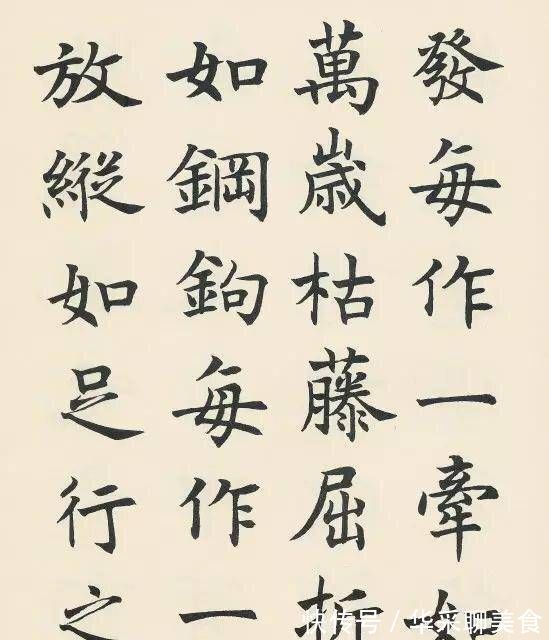 發每作一牽
萬歳枯藤屈
如鋼鉤每作一
放縱如足行之
快传号/华采聊美食